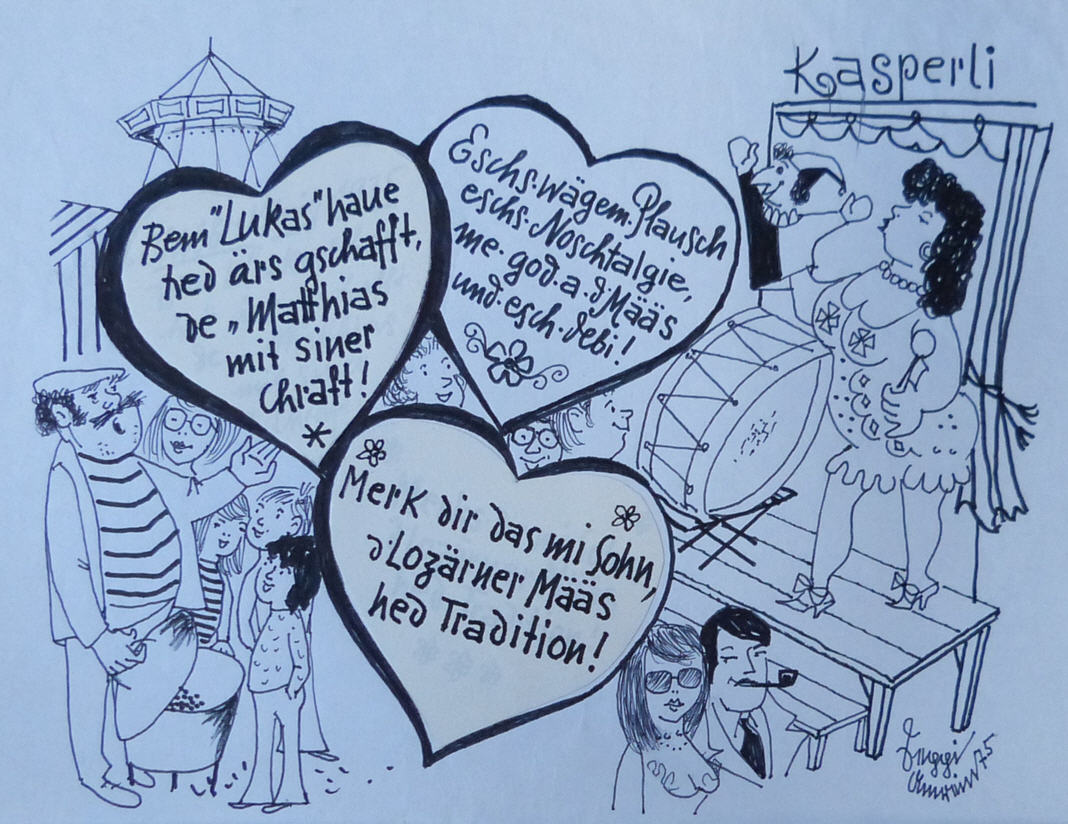 Kasperli
Bem "Lukas" haue
hed ärs gschafft,
de „Matthias
mit siner
chraft!
Eschs.wägem.Plausch
eschs.Noschtalgie,
me.god.a.d Määs
und.esch.debi!
Merk dir das mi Sohn,
d'Lozärner Määs
hed Tradition!
75